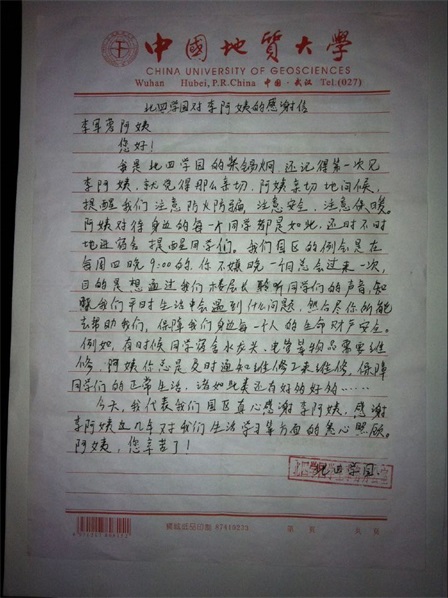 中國地質大學
CHINA UNIVERSITY OF GEOSCIENCES
Wuhan Hubei, P.R.China 中国·武汉 Tel:(027)
北四学园对李阿姨的感谢信
李军芳阿姨
您好！
我是北四学园的，还记得第一次见
李阿姨，就觉得那么亲切，阿姨亲切地问候，
提醒我们注意防火防骗，注意安全，注意休息
阿姨对待身边的每一个同学都是如此，还时不时
地进宿舍提醒同学们，我们园区的例会是在
每周四晚9:00的，你不嫌晚一个总会过来一次，
目的是想通过我们楼层长聆听同学们的声音，知
晓我们平时生活中会遇到什么问题，然后尽你所能
去帮助我们，保障我们身边每一个人的生命财产安全。
例如，有时候同学宿舍水龙头、电管等物品需要维
修，阿姨你总是及时通知维修工来维修，保障
同学们的正常生活，诸如此类还有好的好的……
今天，我代表我们园区真心感谢李阿姨，感谢
李阿姨这几年对我们生活学习等方面的关心照顾。
阿姨，您辛苦了！
北四学园
第 页 共 页